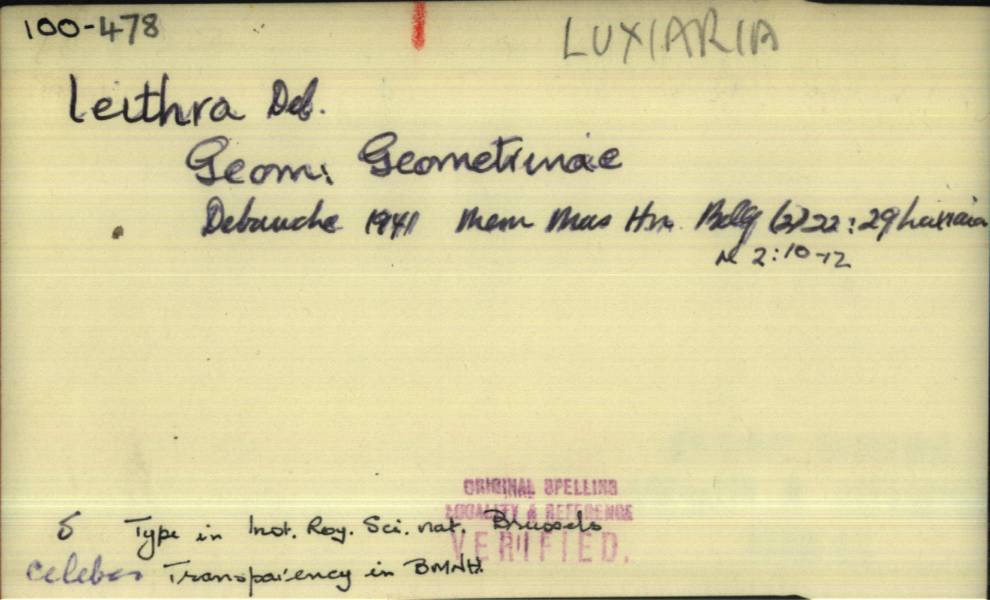 100-478
LUXIARIA
leithra Deb.
Geom: Geometrinae
Debauche 1941 Mem Mus Hn. Belg (2) 22: 29 Luxiaria
2:10-12
ORIGINAL SPELLING
LOCALITY & REFERENCE
VERIFIED.
Type in Inst. Roy. Sci. nat. Brussels
Celebes Transpaiency in BMNH.